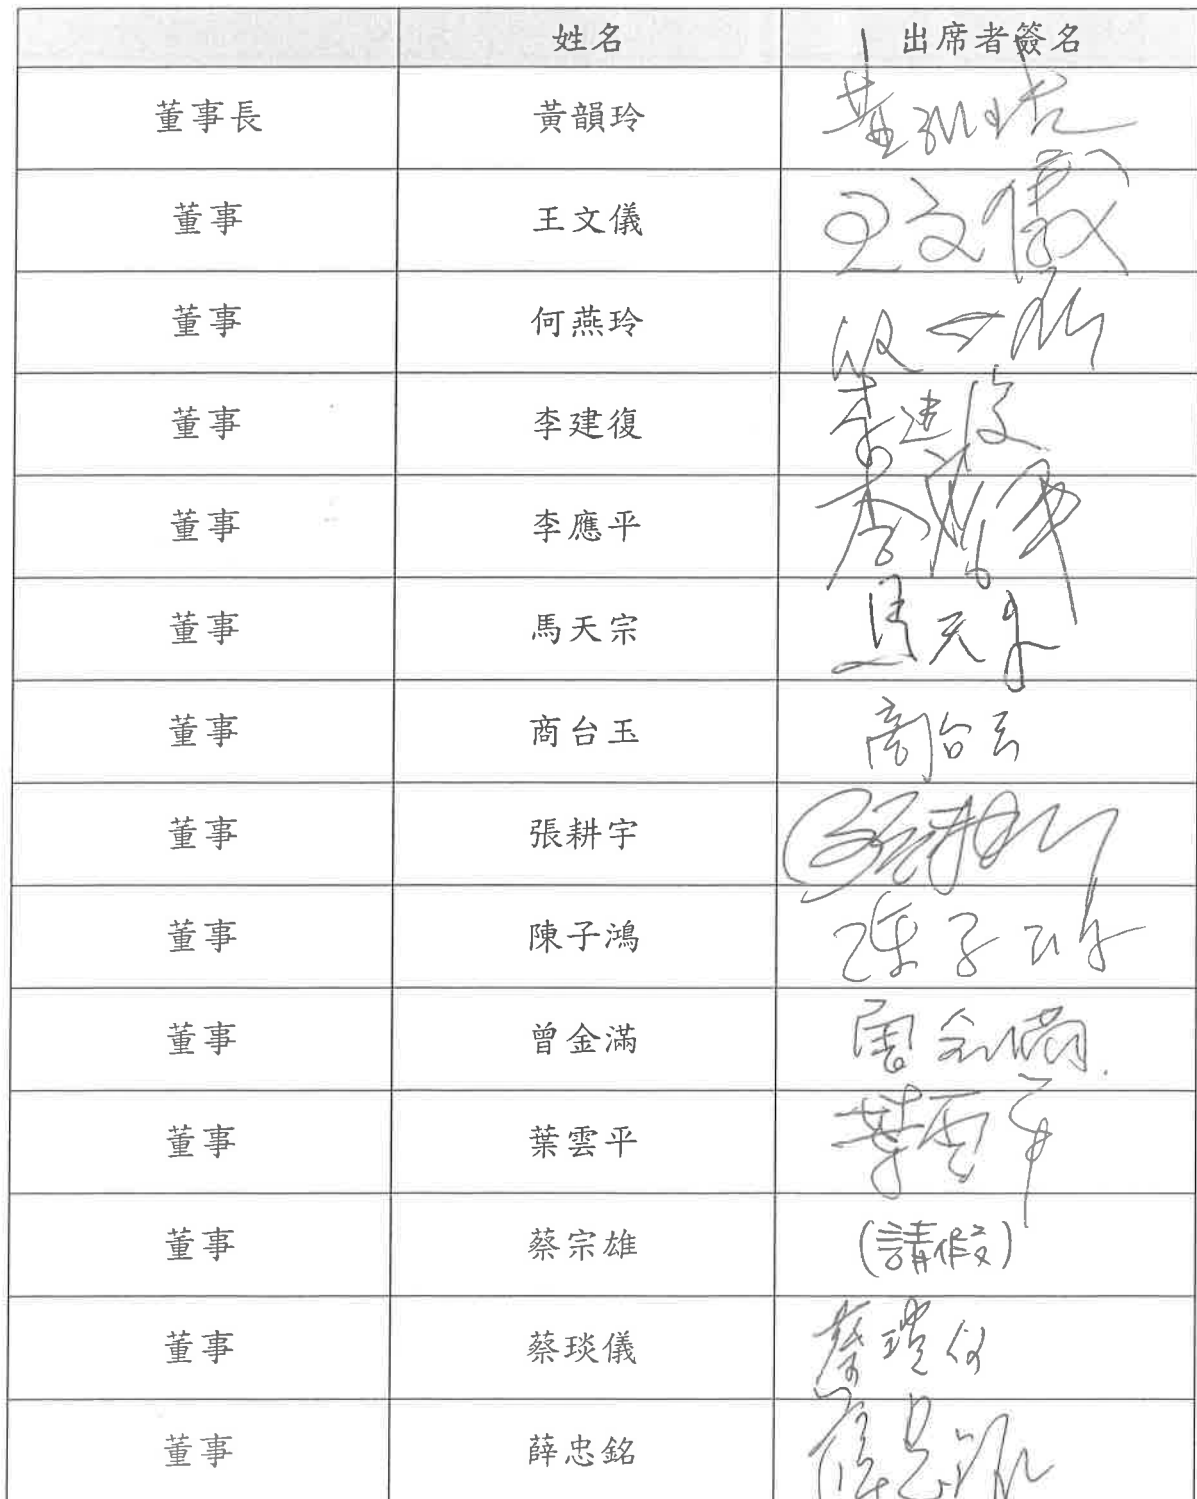 姓名 出席者簽名
董事長 黃韻玲
董事 王文儀 王文儀
董事 何燕玲
董事 李建復 李建復
董事 李應平 李應平
董事 馬天宗 馬天宗
董事 商台玉 商台玉
董事 張耕宇 張耕宇
董事 陳子鴻 陳子鴻
董事 曾金滿 曾金滿
董事 葉雲平 葉雲平
董事 蔡宗雄 (請假)
董事 蔡琰儀 蔡琰儀
董事 薛忠銘 薛忠銘